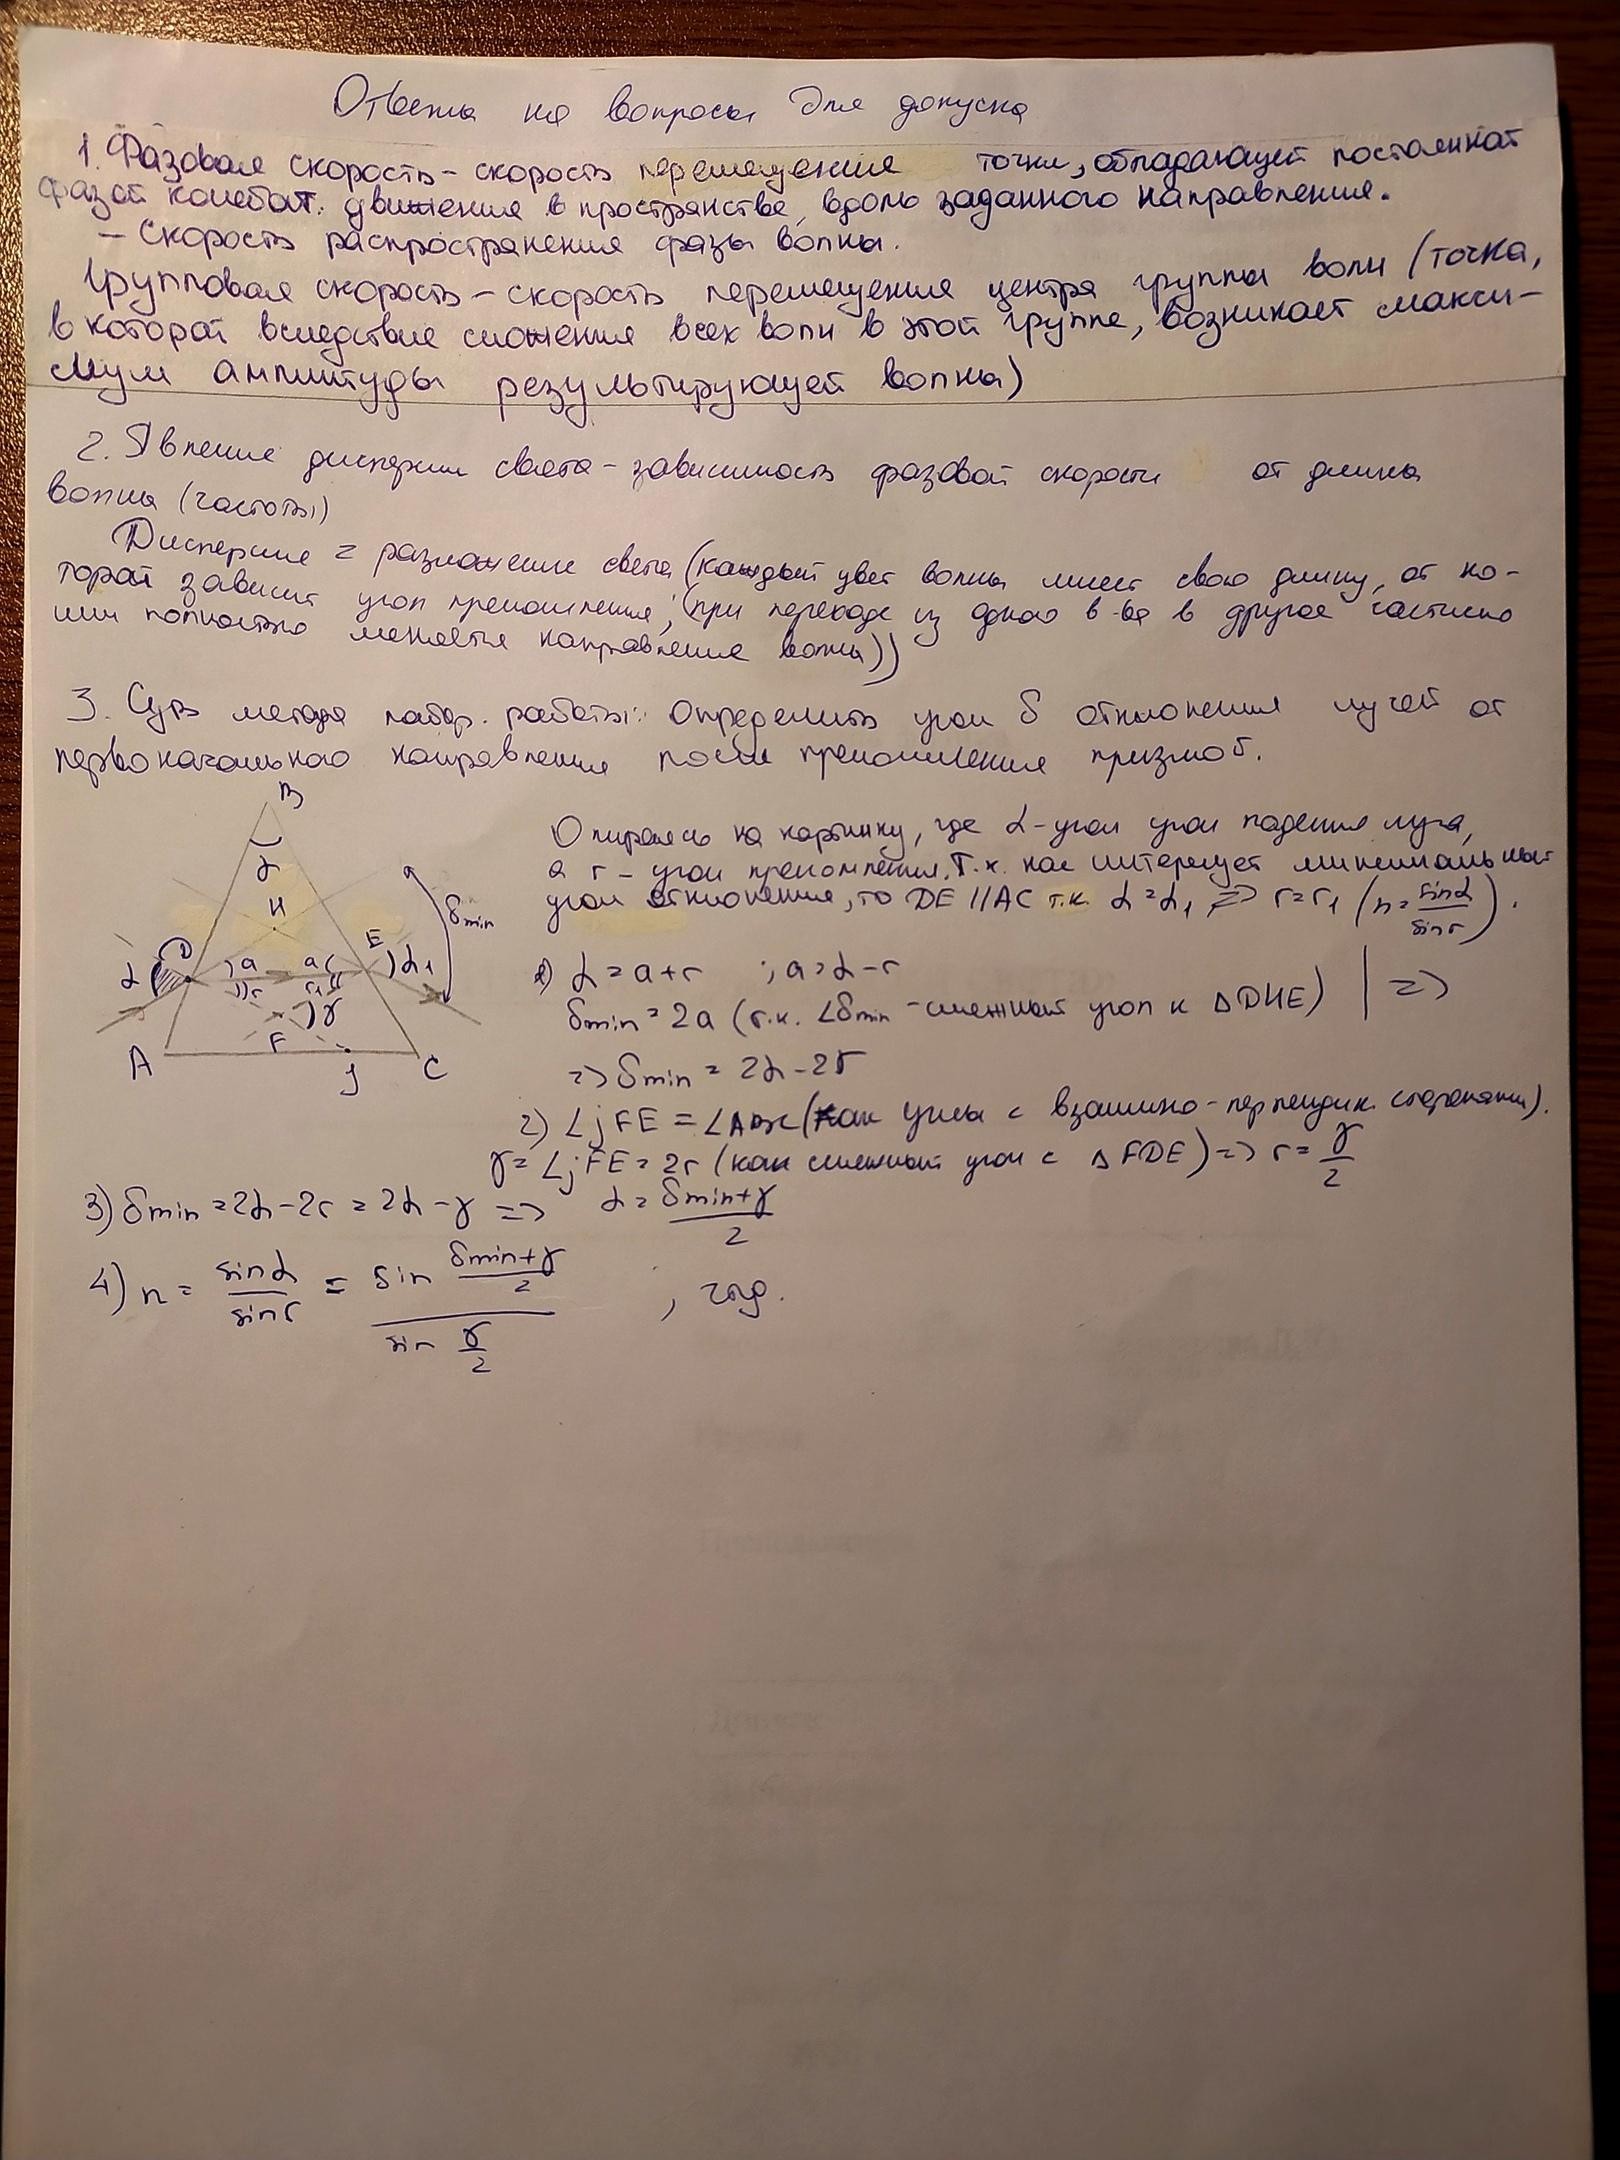 Ответы на вопросы для допуска
1. Фазовая скорость - скорость перемещения точки, обладающей постоянной
фазой колебат. движения в пространстве, вдоль заданного направления.
- Скорость распространения фазы волны.
Групповая скорость - скорость перемещения центра группы волн (точка,
в которой вследствие сложения всех волн в этой группе, возникает макси-
мум амплитуды результирующей волны)
2. Явление дисперсии света - зависимость фазовой скорости от длины
волны (частоты)
Дисперсия = разложение света (каждый цвет волны имеет свою длину, от ко-
торой зависит угол преломления; (при переходе из одного в-ва в другое частично
или полностью меняется направление волны))
3. Суть метода лабор. работы: Определить угол δ отклонения лучей от
первоначального направления после преломления призмой.
B
γ
H
δmin
α D a a E α1
r r1
γ
F
A j C
Опираясь на картинку, где α - угол угол падения луча,
а r - угол преломления. Т.к. нас интересует минимальный
угол отклонения, то DE // AC т.к. α = α1 => r = r1 (n = sinα/sinr).
1) α = a + r ; a = α - r
δmin = 2a (т.к. ∠δmin - смежный угол к △DHE) | =>
=> δmin = 2α - 2r
2) ∠jFE = ∠ABC (как углы с взаимно-перпендик. сторонами).
γ = ∠jFE = 2r (как смежный угол с △FDE) => r = γ/2
3) δmin = 2α - 2r = 2α - γ => α = (δmin + γ)/2
4) n = sinα/sinr = sin (δmin + γ)/2 / sin γ/2 , чтд.